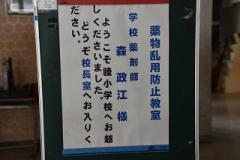 薬物乱用防止教室
学校薬剤師
森 政江 様
ようこそ睦小学校へお越
しくださいました。
どうぞ校長室へお入りく
ださい。